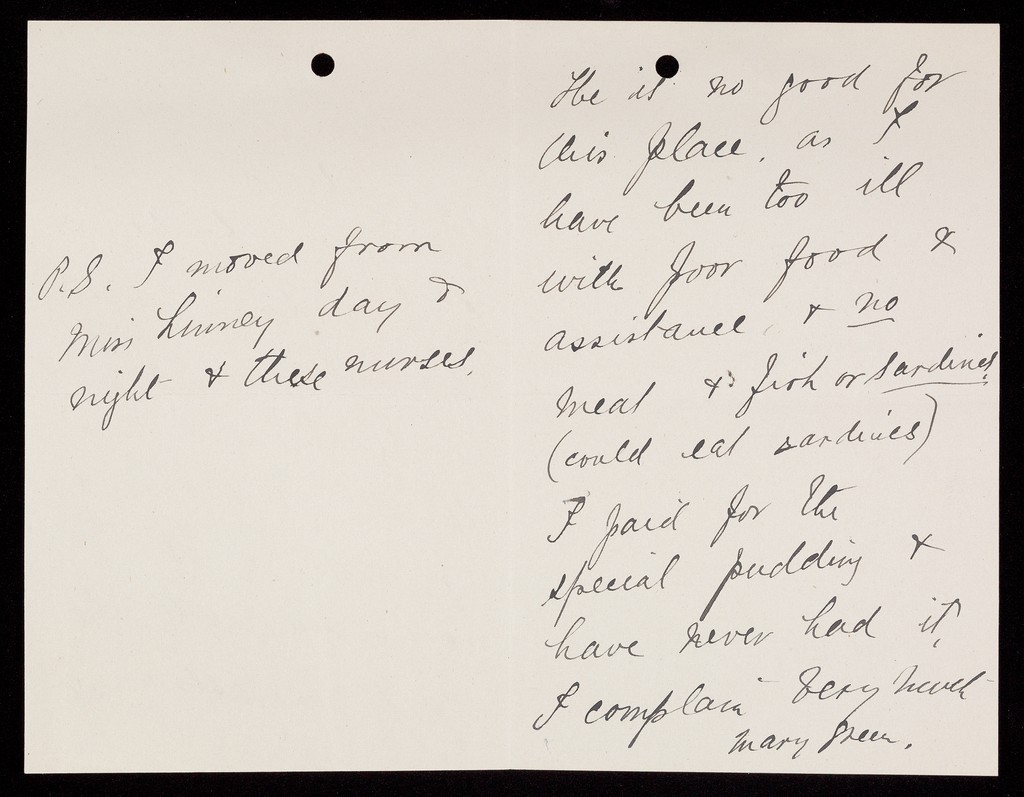 P.S. I moved from
Miss Linney day &
night & these nurses.
He is no good for
this place. as I
have been too ill
with poor food &
assistance, & no
meat & fish or sardines.
(could eat sardines)
I paid for the
special pudding &
have never had it,
I complain very much
Mary Green.